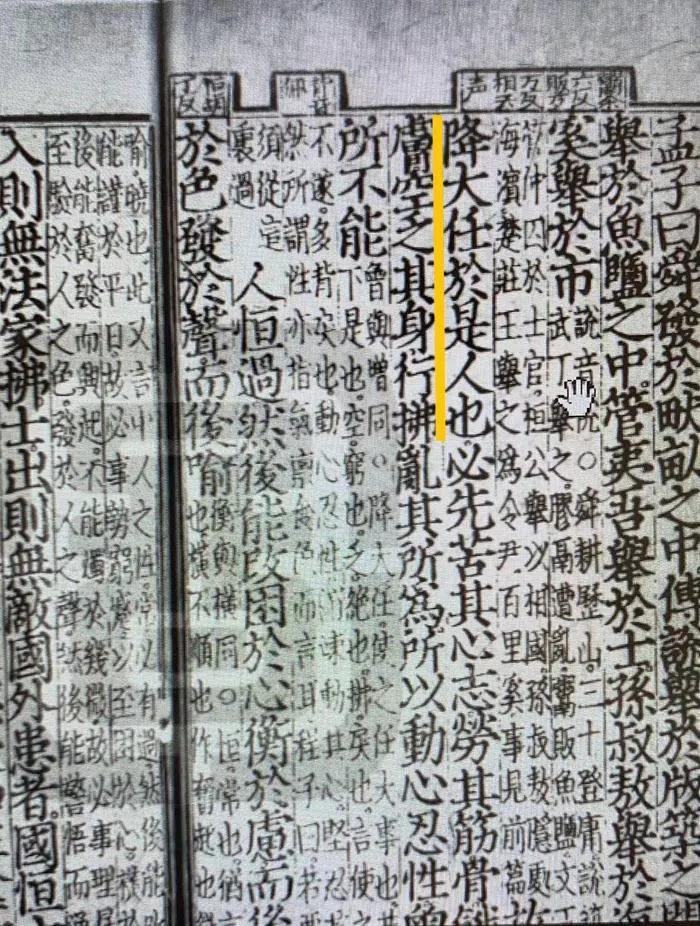 孟子曰舜發於畎畝之中傅說舉於版築之間
舉於魚鹽之中管夷吾舉於士孫叔敖舉於海
奚舉於市
說音悅○舜耕歷山三十登庸說築
武丁舉之。膠鬲遭亂鬻販魚鹽文王
管仲囚於士官桓公舉以相國孫叔敖隱處
海濱楚莊王舉之為令尹百里奚事見前篇
故
降大任於是人也必先苦其心志勞其筋骨餓
膚空乏其身行拂亂其所為所以動心忍性曾
所不能
曾與增同○降大任使之任大事也
下是也。空窮也乏絕也拂戾也言使之
不遂。多背戾也動心忍性謂竦動其心堅忍
然所謂性亦指氣稟食色而言耳程子曰若要
須從這
裏過
人恒過然後能改困於心衡於慮而後
於色發於聲而後喻
衡與橫同○恒常也猶言
也橫不順也作奮起也
喻曉也此又言中人之性常必有過然後能
能謹於平日。故必事勢窮蹙以至困於心橫於
後能奮發而興起。不能燭於幾微故必事理
至驗於人之色發於人之聲然後能警悟而
入則無法家拂士出則無敵國外患者。國恒